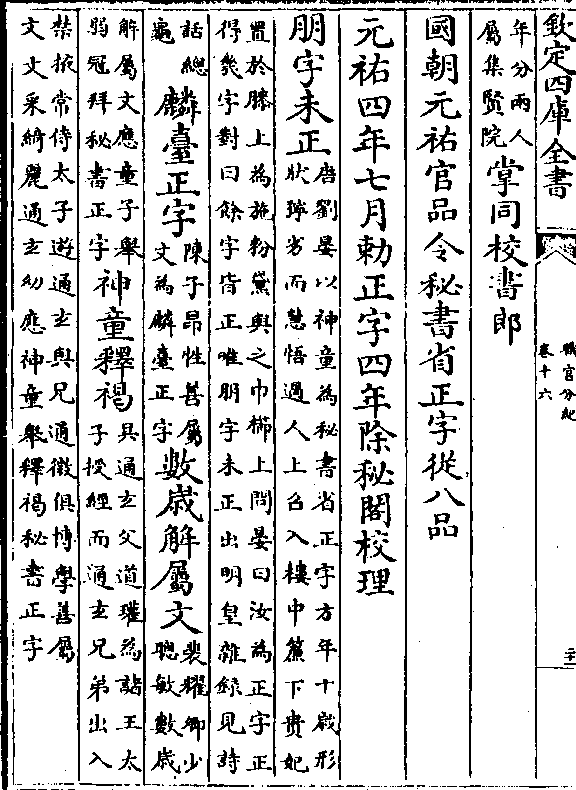 欽定四庫全書
職官分紀
卷十六
年分兩人
屬集賢院
掌同校書郎
國朝元祐官品令秘書省正字從八品
元祐四年七月勅正字四年除秘閣校理
朋字未正
唐劉晏以神童為秘書省正字方年十歲形
狀獰劣而慧悟過人上召入樓中簾下貴妃
置於膝上為施粉黛與之巾櫛上問晏曰汝為正字正
得幾字對曰餘字皆正唯朋字未正出明皇雜錄見詩
話總
龜
麟臺正字
陳子昂性善屬
文為麟臺正字
數歳解屬文
裴耀卿少
聰敏數歳
解屬文應童子舉
弱冠拜秘書正字
神童釋褐
具通玄父道瓘為詰王太
子授經而通玄兄弟出入
禁掖常侍太子遊通玄與兄通微俱博學善屬
文文采綺麗通玄幼應神童舉釋褐秘書正字